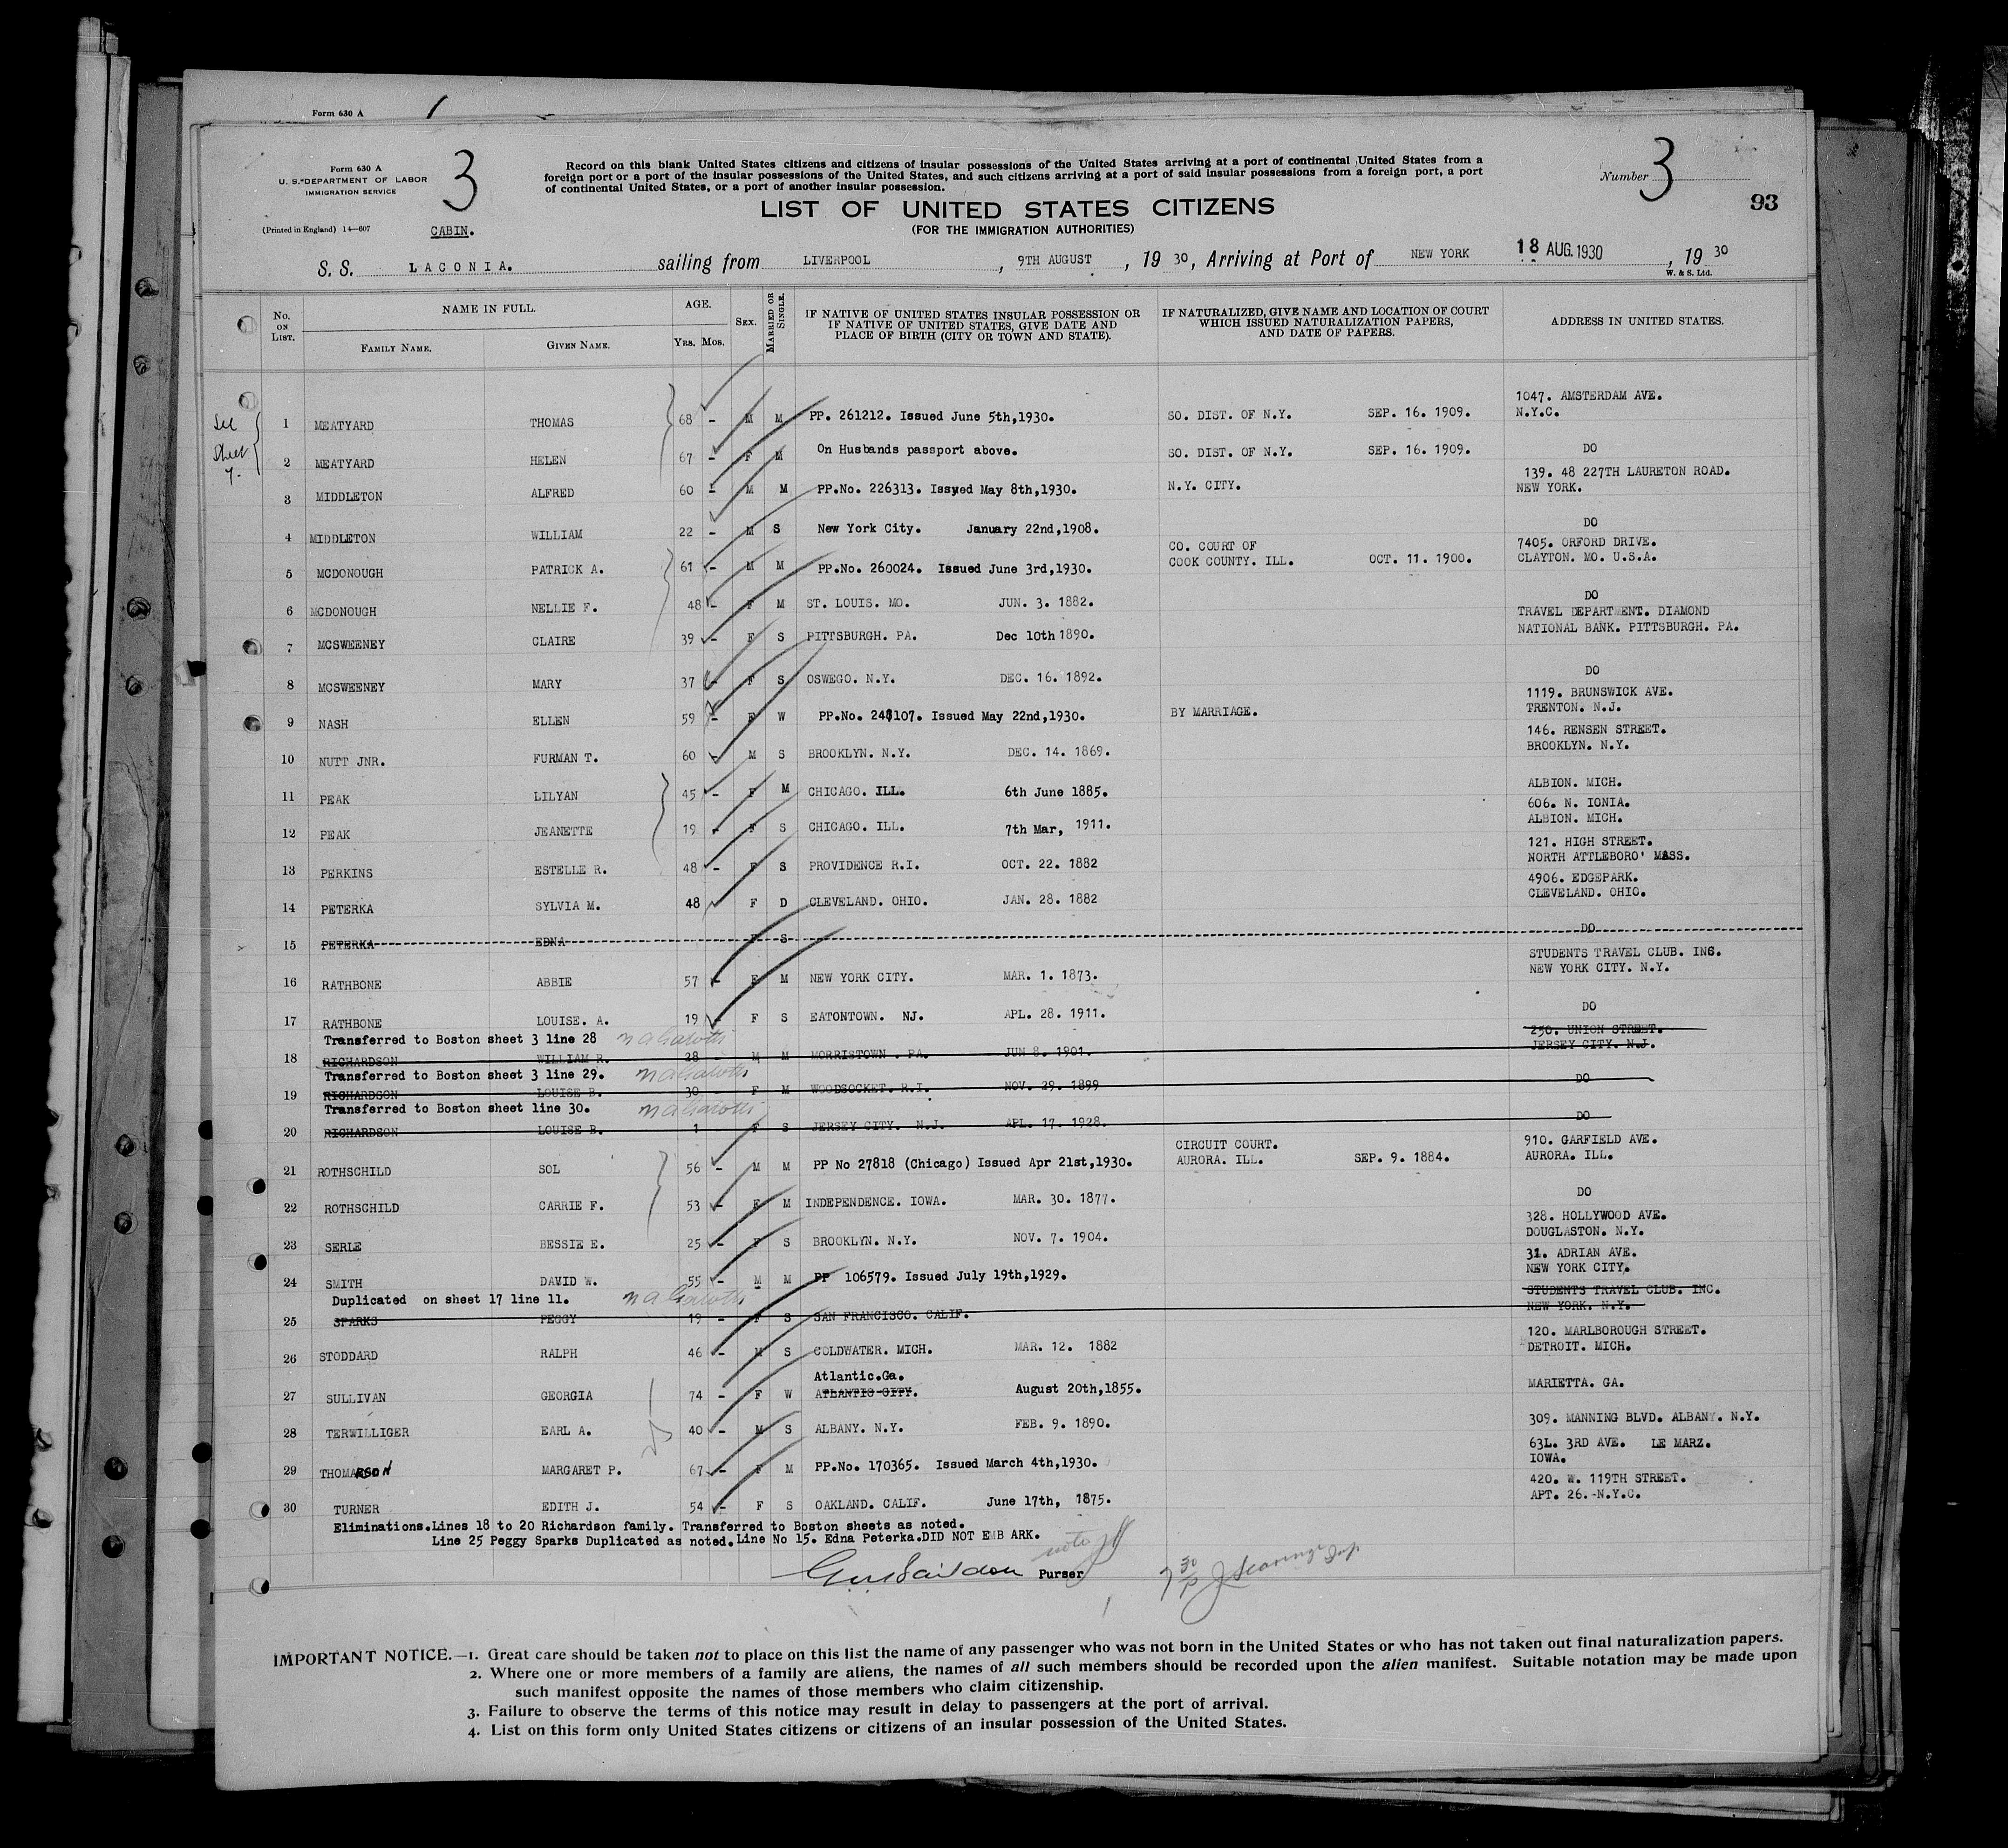 Form 630 A
Form 630 A
U. S. DEPARTMENT OF LABOR
IMMIGRATION SERVICE
(Printed in England) 14—607
3
CABIN.
Record on this blank United States citizens and citizens of insular possessions of the United States arriving at a port of continental United States from a
foreign port or a port of the insular possessions of the United States, and such citizens arriving at a port of said insular possessions from a foreign port, a port
of continental United States, or a port of another insular possession.
Number 3
93
LIST OF UNITED STATES CITIZENS
(FOR THE IMMIGRATION AUTHORITIES)
S. S. LACONIA. sailing from LIVERPOOL, 9TH AUGUST, 19 30, Arriving at Port of NEW YORK 18 AUG. 1930, 19 30
W. & S. Ltd.
No. ON LIST. NAME IN FULL. FAMILY NAME. GIVEN NAME. AGE. YRS. MOS. SEX. MARRIED OR SINGLE. IF NATIVE OF UNITED STATES INSULAR POSSESSION OR IF NATIVE OF UNITED STATES, GIVE DATE AND PLACE OF BIRTH (CITY OR TOWN AND STATE). IF NATURALIZED, GIVE NAME AND LOCATION OF COURT WHICH ISSUED NATURALIZATION PAPERS, AND DATE OF PAPERS. ADDRESS IN UNITED STATES.
See Sheet 7.
1 MEATYARD THOMAS 68 - M M PP. 261212. Issued June 5th,1930. SO. DIST. OF N.Y. SEP. 16. 1909. 1047. AMSTERDAM AVE. N.Y.C.
2 MEATYARD HELEN 67 - F M On Husbands passport above. SO. DIST. OF N.Y. SEP. 16. 1909. DO
3 MIDDLETON ALFRED 60 - M M PP.No. 226313. Issued May 8th,1930. N.Y. CITY. 139. 48 227TH LAURETON ROAD. NEW YORK.
4 MIDDLETON WILLIAM 22 - M S New York City. January 22nd,1908. DO
5 MCDONOUGH PATRICK A. 61 - M M PP.No. 260024. Issued June 3rd,1930. CO. COURT OF COOK COUNTY. ILL. OCT. 11. 1900. 7405. ORFORD DRIVE. CLAYTON. MO. U.S.A.
6 MCDONOUGH NELLIE F. 48 - F M ST. LOUIS. MO. JUN. 3. 1882. DO
7 MCSWEENEY CLAIRE 39 - F S PITTSBURGH. PA. Dec 10th 1890. TRAVEL DEPARTMENT. DIAMOND NATIONAL BANK. PITTSBURGH. PA.
8 MCSWEENEY MARY 37 - F S OSWEGO. N.Y. DEC. 16. 1892. DO
9 NASH ELLEN 59 - F W PP.No. 248107. Issued May 22nd,1930. BY MARRIAGE. 1119. BRUNSWICK AVE. TRENTON. N.J.
10 NUTT JNR. FURMAN T. 60 - M S BROOKLYN. N.Y. DEC. 14. 1869. 146. RENSEN STREET. BROOKLYN. N.Y.
11 PEAK LILYAN 45 - F M CHICAGO. ILL. 6th June 1885. ALBION. MICH.
12 PEAK JEANETTE 19 - F S CHICAGO. ILL. 7th Mar, 1911. 606. N. IONIA. ALBION. MICH.
13 PERKINS ESTELLE R. 48 - F S PROVIDENCE R.I. OCT. 22. 1882 121. HIGH STREET. NORTH ATTLEBORO' MASS.
14 PETERKA SYLVIA M. 48 F D CLEVELAND. OHIO. JAN. 28. 1882 4906. EDGEPARK. CLEVELAND. OHIO.
15 PETERKA EDNA F S DO
16 RATHBONE ABBIE 57 - F M NEW YORK CITY. MAR. 1. 1873. STUDENTS TRAVEL CLUB. INC. NEW YORK CITY. N.Y.
17 RATHBONE LOUISE. A. 19 - F S EATONTOWN. NJ. APL. 28. 1911. DO
Transferred to Boston sheet 3 line 28
18 RICHARDSON WILLIAM R. 28 M M MORRISTOWN. PA. JUN 8. 1901. 250. UNION STREET. JERSEY CITY. N.J.
Transferred to Boston sheet 3 line 29.
19 RICHARDSON LOUISE B. 30 F M WOODSOCKET. R.I. NOV. 29. 1899 DO
Transferred to Boston sheet line 30.
20 RICHARDSON LOUISE B. 1 F S JERSEY CITY. N.J. APL. 17. 1928. DO
21 ROTHSCHILD SOL 56 - M M PP No 27818 (Chicago) Issued Apr 21st,1930. CIRCUIT COURT. AURORA. ILL. SEP. 9. 1884. 910. GARFIELD AVE. AURORA. ILL.
22 ROTHSCHILD CARRIE F. 53 - F M INDEPENDENCE. IOWA. MAR. 30. 1877. DO
23 SERLE BESSIE E. 25 - F S BROOKLYN. N.Y. NOV. 7. 1904. 328. HOLLYWOOD AVE. DOUGLASTON. N.Y.
24 SMITH DAVID W. 55 - M M PP 106579. Issued July 19th,1929. 31. ADRIAN AVE. NEW YORK CITY.
Duplicated on sheet 17 line 11.
25 SPARKS PEGGY 19 - F S SAN FRANCISCO. CALIF. STUDENTS TRAVEL CLUB. INC. NEW YORK. N.Y.
26 STODDARD RALPH 46 - M S COLDWATER. MICH. MAR. 12. 1882 120. MARLBOROUGH STREET. DETROIT. MICH.
27 SULLIVAN GEORGIA 74 - F W Atlantic.Ga. ATLANTIC CITY. August 20th,1855. MARIETTA. GA.
28 TERWILLIGER EARL A. 40 - M S ALBANY. N.Y. FEB. 9. 1890. 309. MANNING BLVD. ALBANY. N.Y.
29 THOMARSON MARGARET P. 67 - F M PP.No. 170365. Issued March 4th,1930. 63L. 3RD AVE. LE MARZ. IOWA.
30 TURNER EDITH J. 54 - F S OAKLAND. CALIF. June 17th, 1875. 420. W. 119TH STREET. APT. 26. N.Y.C.
Eliminations.Lines 18 to 20 Richardson family. Transferred to Boston sheets as noted.
Line 25 Peggy Sparks Duplicated as noted. Line No 15. Edna Peterka.DID NOT EMBARK.
Purser
IMPORTANT NOTICE.—1. Great care should be taken not to place on this list the name of any passenger who was not born in the United States or who has not taken out final naturalization papers.
2. Where one or more members of a family are aliens, the names of all such members should be recorded upon the alien manifest. Suitable notation may be made upon
such manifest opposite the names of those members who claim citizenship.
3. Failure to observe the terms of this notice may result in delay to passengers at the port of arrival.
4. List on this form only United States citizens or citizens of an insular possession of the United States.